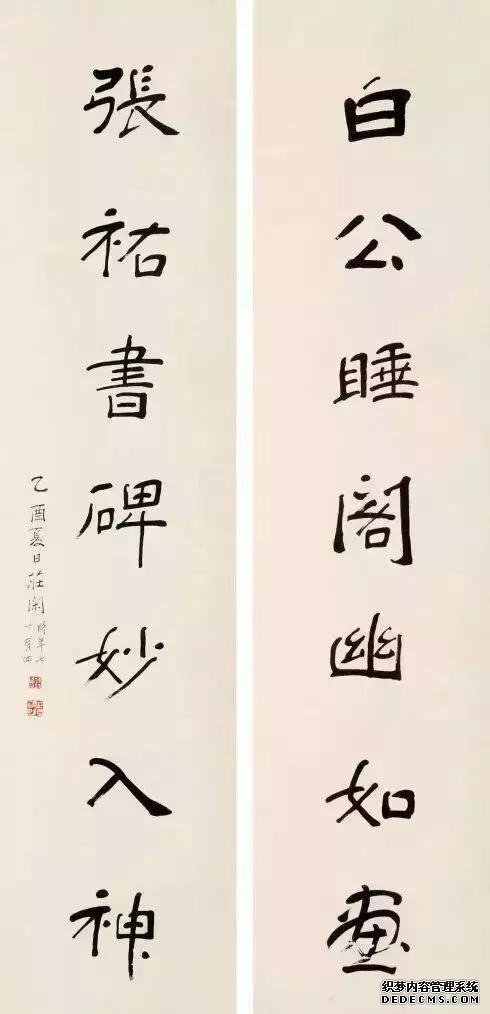 白公睡閣幽如畫
張祐書碑妙入神
乙酉夏日莊閑時年七
十有四
织梦内容管理系统
DEDECMS.COM